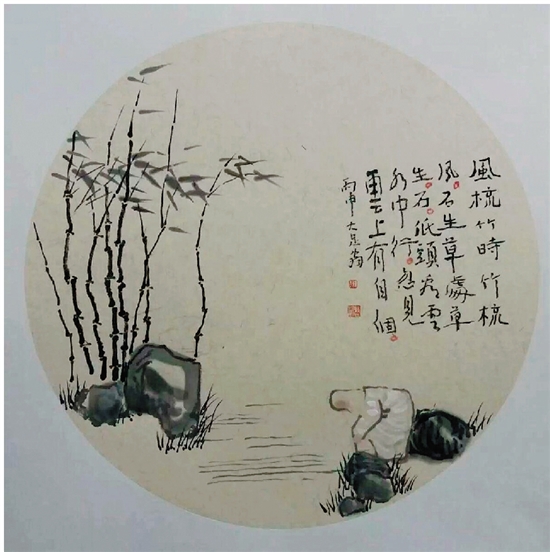 風梳竹時竹梳
風。石生草處草
生石。低頭看雲
水中行。忽見
雲上有自個。
丙申